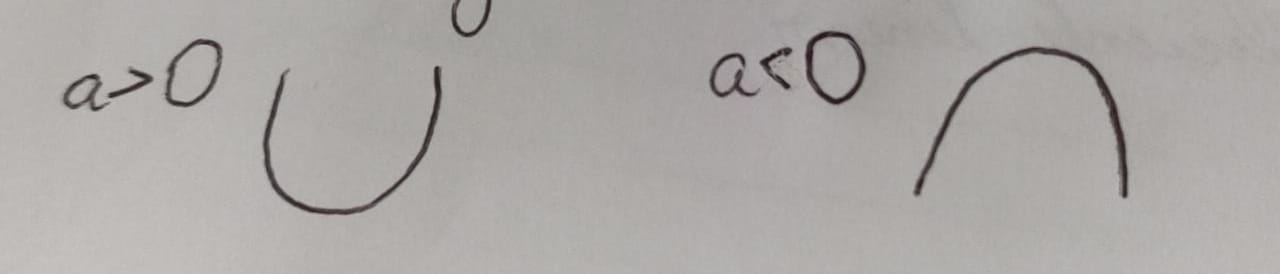 a>0 a<0